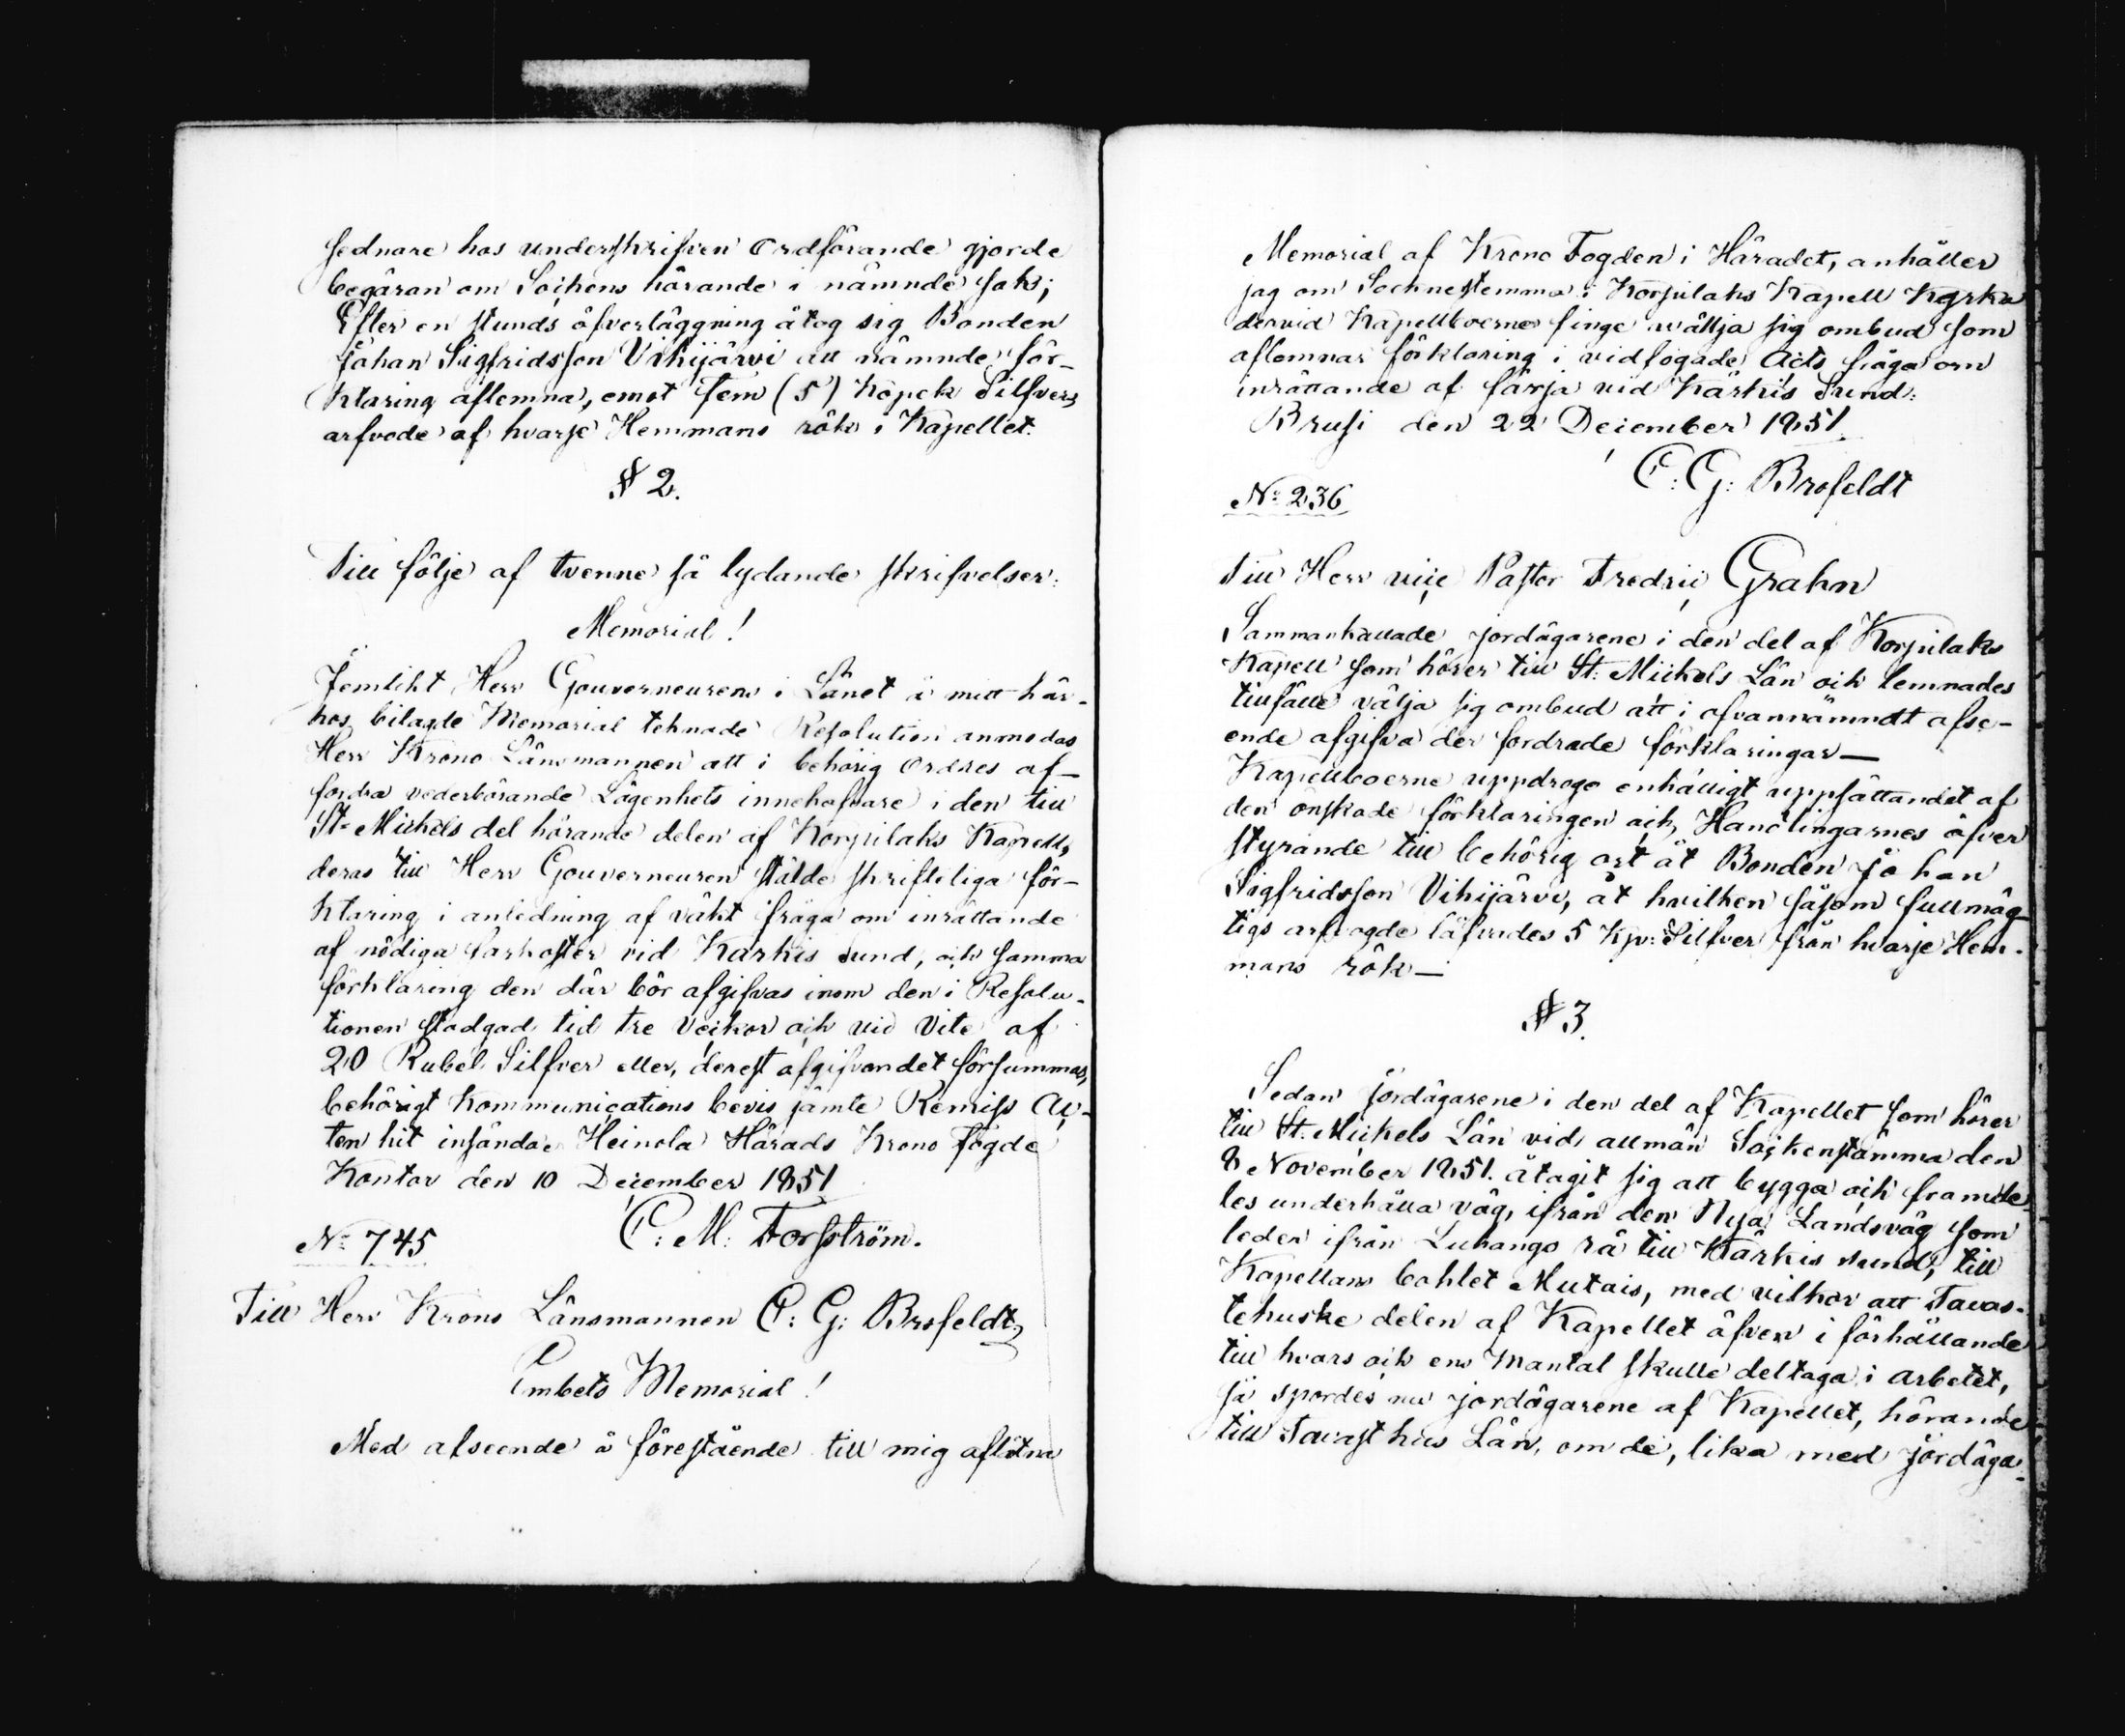 sednare hos underskrifven ordförande gjorde
begäran om Sockens hörande i nämnde sak;
Efter en stunds öfverläggning åtog sig Bonden
Johan Sigfridsson Vihijärvi att nämnde för-
klaring aflemna, emot fem (5) Kopek Silfvers
arfvode af hvarje Hemmans rök i Kapellet.
§ 2.
Till följe af tvenne så lydande skrifvelser:
Memorial!
Jemlikt Herr Gouverneurens i Länet å mitt här-
hos bilagde Memorial teknade Resolution anmodas
Herr Krono Länsmannen att i behörig ordres af-
fordra vederbörande Lägenhets innehafvare i den till
St. Mickels del hörande delen af Korpilaks Kapell,
deras till Herr Gouverneuren stälde skrifteliga för-
klaring i anledning af väkt fråga om inrättande
af nödiga farkoster vid Karkis sund, och samma
förklaring den där bör afgifvas inom den i Resolu-
tionen stadgad tid tre veckor och vid vite af
20 Rubel Silfver eller, derest afgifvandet försummas,
behörigt Kommunications bevis jämte Remiss Ac-
ten hit insända. Heinola Härads Krono Fogde
Kontor den 10 December 1851
C: M: Forsström.
No 745
Till Herr Krono Länsmannen C: G: Brofeldt,
Embets Memorial!
Med afseende å förestående till mig aflåtna
Memorial af Krono Fogden i Häradet, anhåller
jag om Sochnestemma i Korpilaks Kapell Kyrka
dervid Kapellboerne finge wällja sig ombud som
aflemnar förklaring i vidfogade Acts fråga om
inrättande af färja vid Kärkis Sund:
Brusi den 22 December 1851
C: G: Brofeldt
No 236
Till Herr vice Pastor Fredric Grahn
Sammankallade jordägarene i den del af Korpilaks
Kapell som hörer till St: Mickels Län och lemnades
tillfälle välja sig ombud att i ofvannämndt afse-
ende afgifva der fordrade förklaringar—
Kapellboerne uppdrogo enhälligt uppsättandet af
den önskade förklaringen och Handlingarnes öfver
styrande till behörig ort åt Bonden Johan
Sigfridsson Vihijärvi, åt hvilken såsom fullmäg-
tigs arfvode låfvades 5 Kp: Silfver från hvarje Hem-
mans rök—
§ 3.
Sedan Jordägarene i den del af Kapellet som hörer
till St. Mickels Län vid allmän Sockenstämma den
8 November 1851. åtagit sig att bygga och framde-
les underhålla väg, ifrån den Nya Landsväg som
leder ifrån Luhango rå till Kärkis sund, till
Kapellans bohlet Mutais, med vilkor att Tavas-
tehuske delen af Kapellet äfven i förhållande
till hvars och ens Mantal skulle deltaga i arbetet,
så spordes nu jordägarene af Kapellet, hörande
till Tavasthus Län, om de, lika med Jordäga-